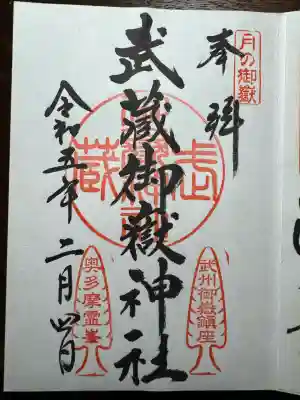 月の御嶽
奉拝
武蔵御嶽神社
令和五年二月四日
武州御嶽鎮座
奥多摩霊峯
武蔵